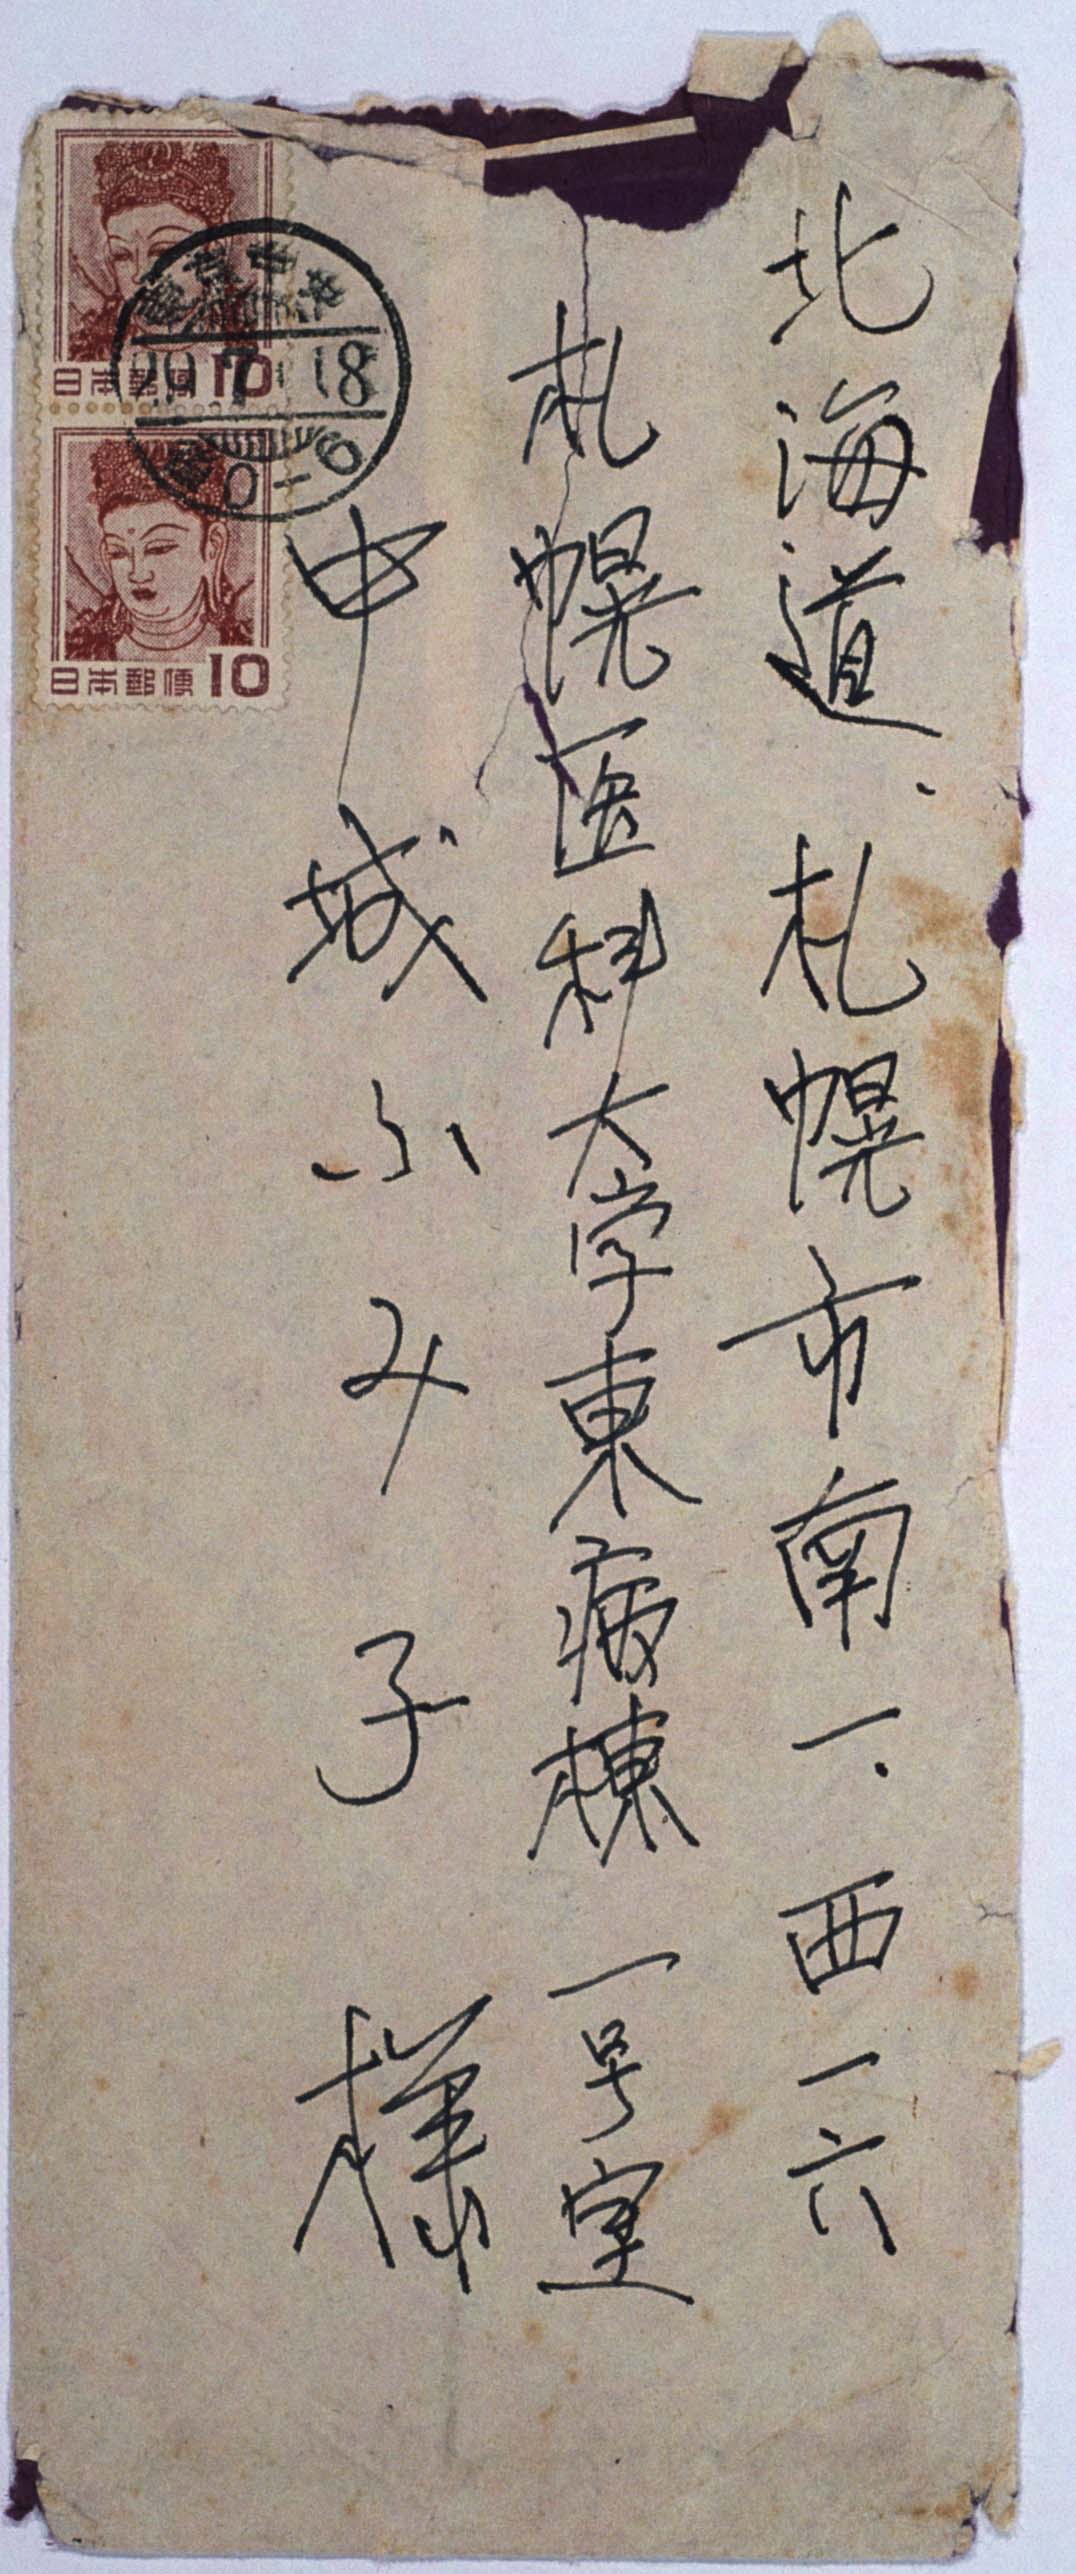 北海道、札幌市南一.西一六
札幌医科大学東病棟一号室
中城ふみ子様
日本郵便10
日本郵便10
中央
29.7.18
0-6